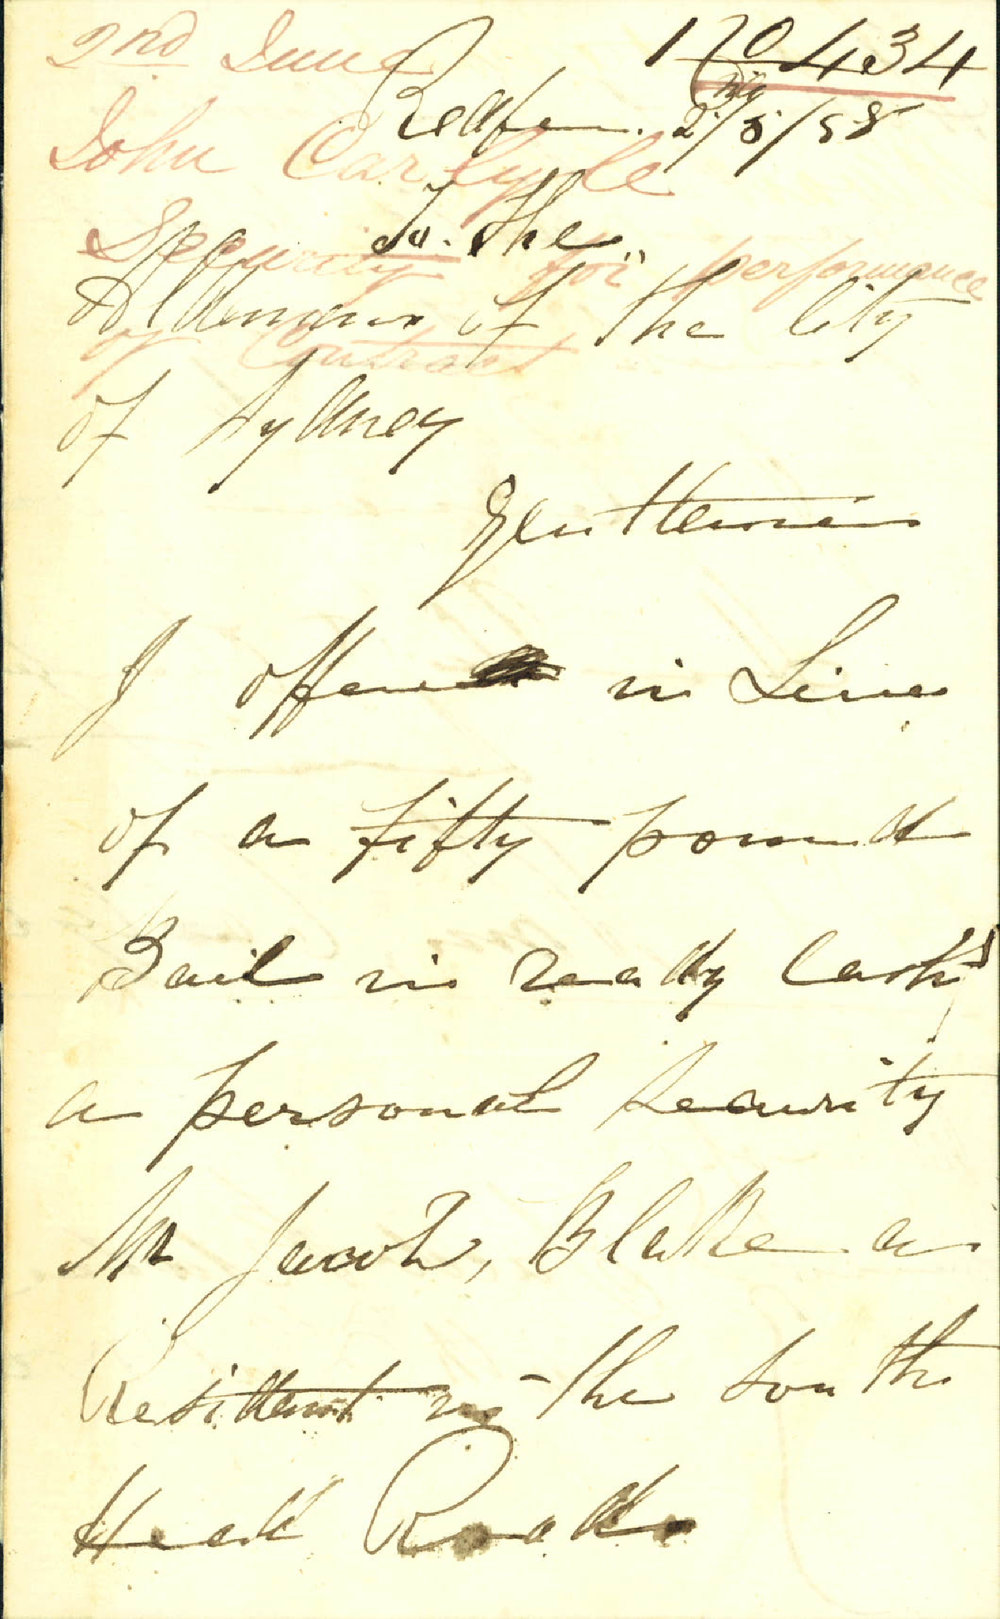 2nd June
170 434
Redfern. 2/5/58
John Carlyle
To the
Security for performance
Aldermen of the City
of Contract
of Sydney
Gentlemen
I offer in Lieu
of a fifty pound
Bail in ready Cash
a personal security
Mr Jacob, Blake a
Resident in the South
Head Road